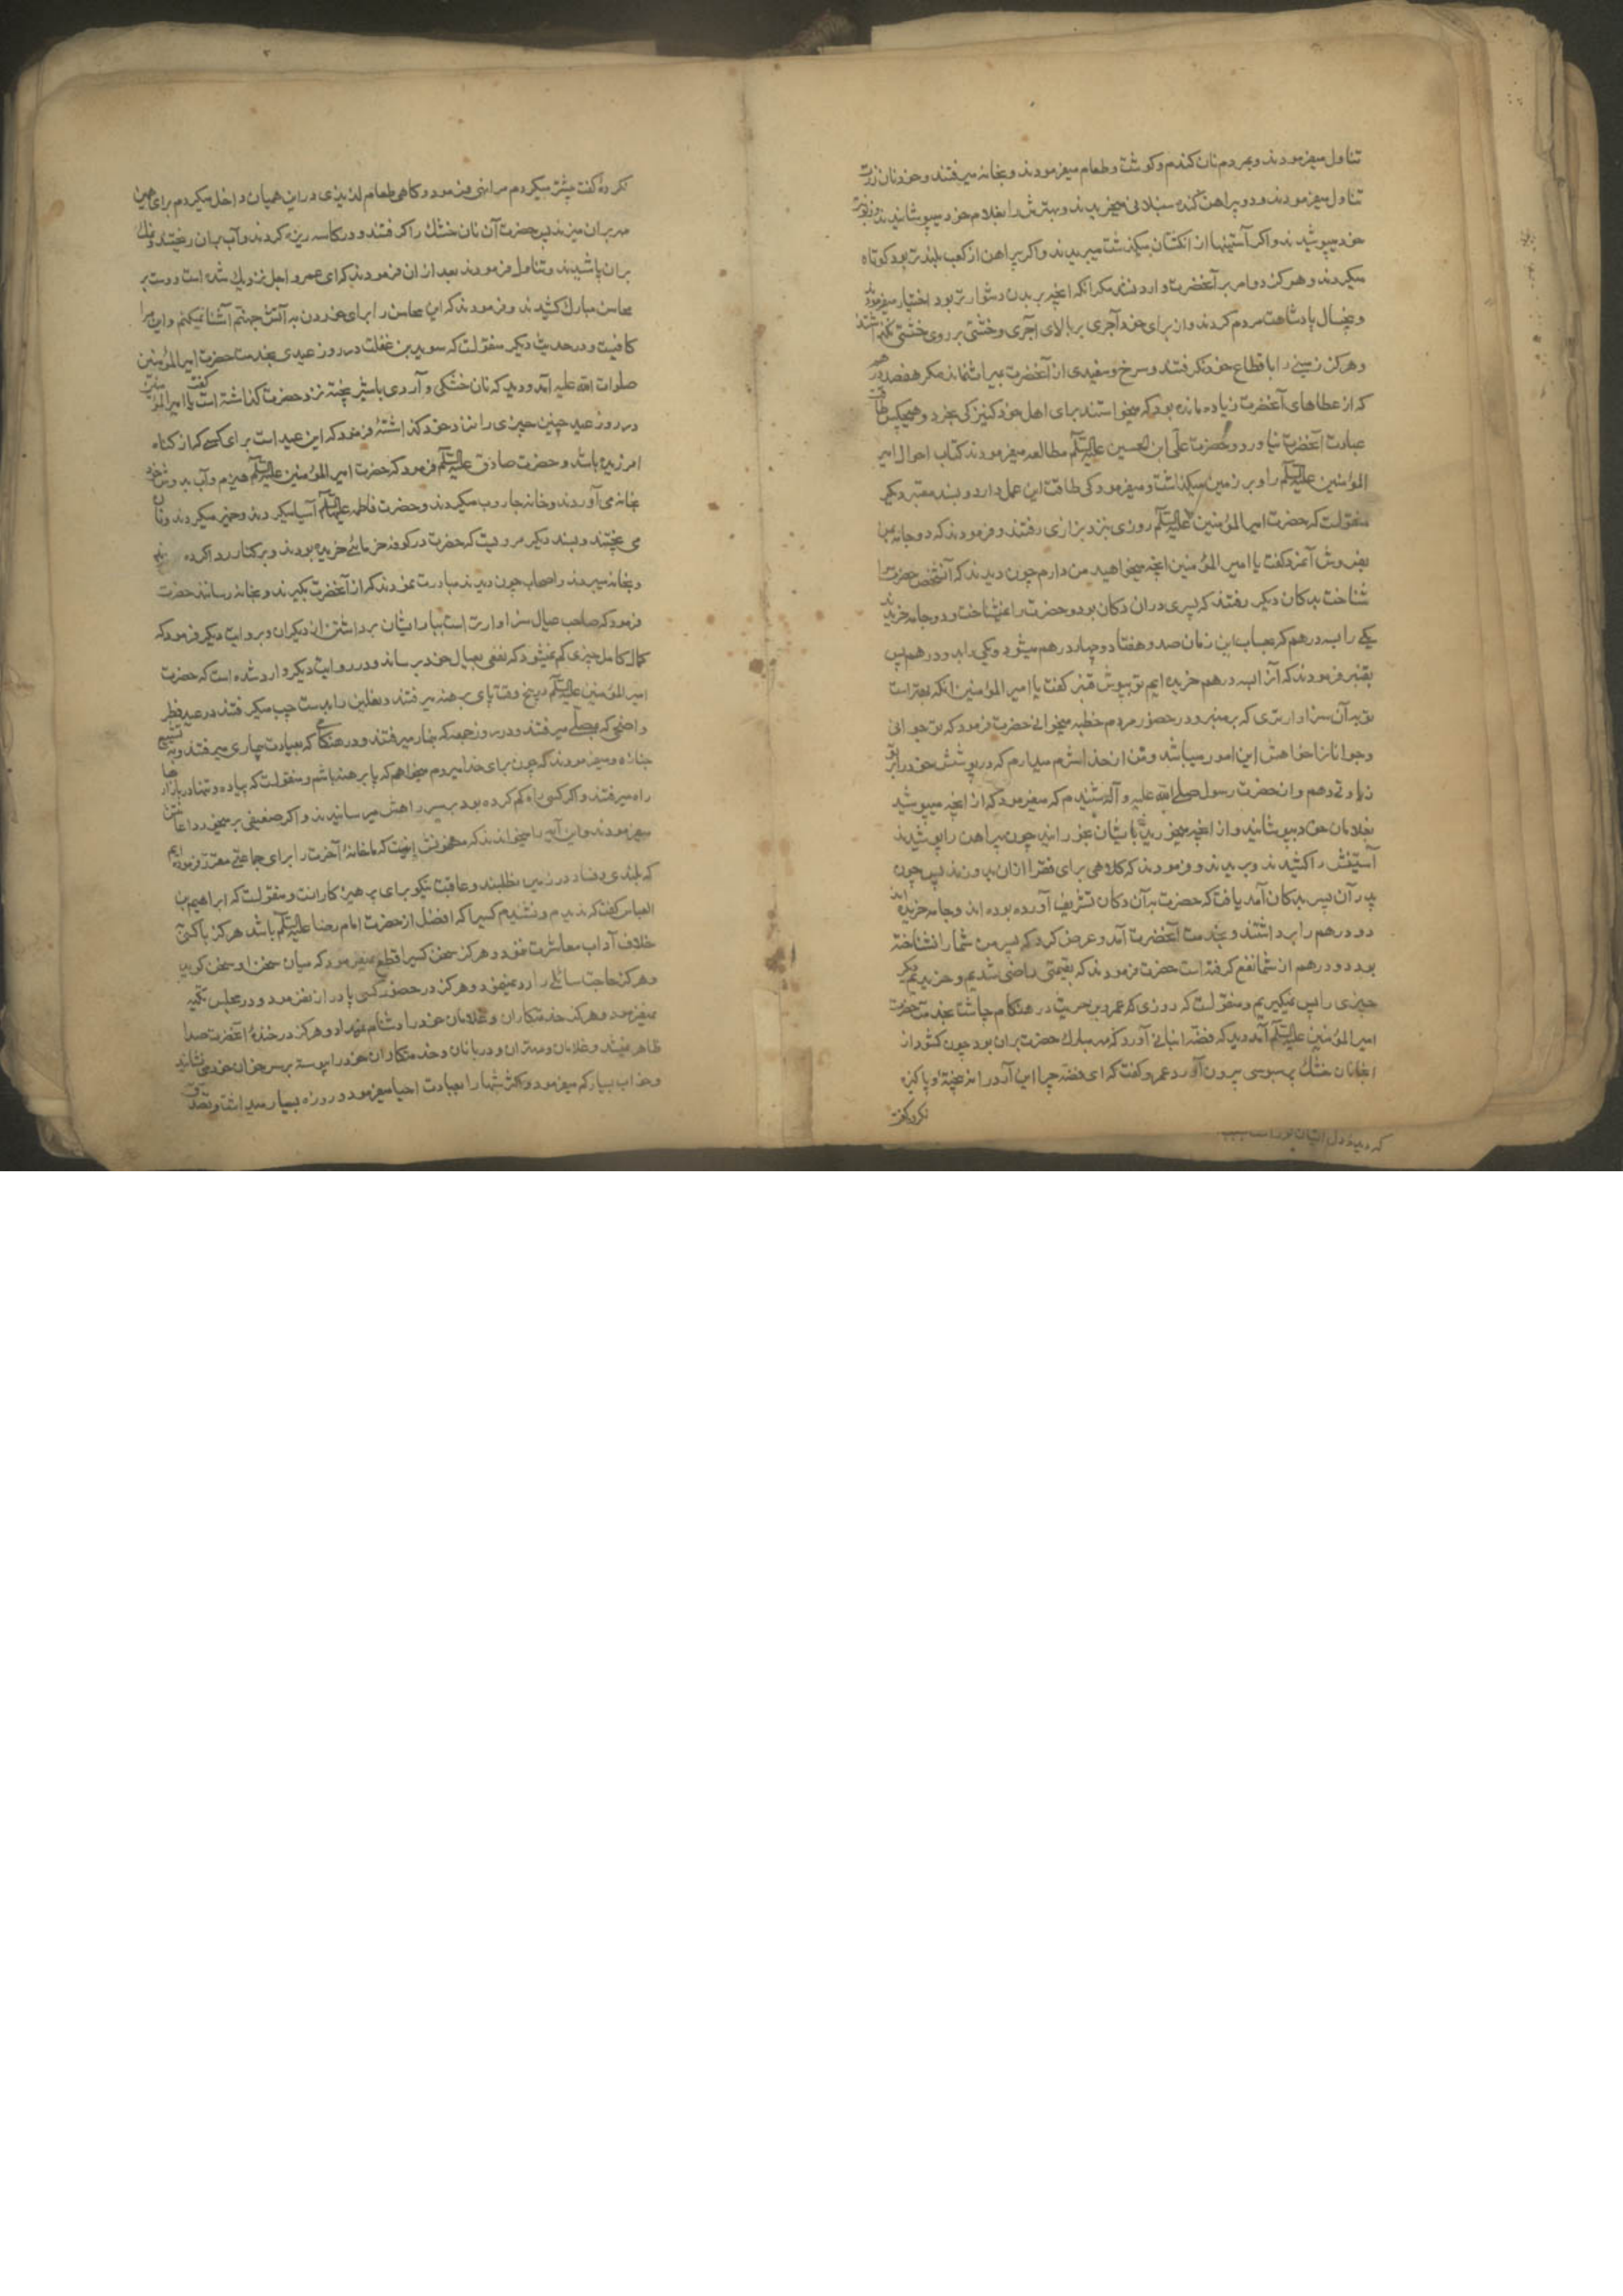 تناول میفرمودند و بمردم نان کندم و کوشت و طعام میفرمودند و بخانه میرفتند و خود نان
تناول میفرمودند و دو پیراهن کنده سنبلانی میخریدند و بهترش را بغلام خود میپوشانیدند
خود میپوشیدند و اکر آستینها از انکشتان میکذشت میبریدند و اکر پیراهن از کعب بلندتر بود کوتاه
میکردند و هرکز دو امر بر آنحضرت وارد نشد مکر آنکه آنچه بر بدن دشوارتر بود اختیار میفرمودند
و پنجسال پادشاهت مردم کردند و از برای خود آجری بر بالای آجری و خشتی بر روی خشتی نکذاشتند
و هرکز زمینی را باقطاع خود نکرفتند و سرخ و سفیدی از آنحضرت میراث نماند مکر هفصد درهم
که از عطاهای آنحضرت زیاده مانده بود که میخواستند برای اهل خود کنیزکی بخرد و هیچکس طاقت
عبادت آنحضرت نیاورد و حضرت علی ابن الحسین علیه السلم مطالعه میفرمودند کتاب احوال امیر
المؤمنین علیه السلم را و بر زمین میکذاشت و میفرمود کی طاقت این عمل دارد و بسند معتبر دیکر
منقولست که حضرت امیر المؤمنین علیه السلم روزی بنزد بزازی رفتند و فرمودند که دو جامه بمن
بفروش آنمرد کفت یا امیر المؤمنین آنچه میخواهید من دارم چون دیدند که آنشخص حضرت را
شناخت بدکان دیکر رفتند که پسری در ان دکان بود و حضرت را نمیشناخت و دو جامه خریدند
یکی را بسه درهم که بحساب این زمان صد و هفتاد و چهار درهم میشود و یکی را بدو درهم پس
بقنبر فرمودند که آنرا بسه درهم خریده ایم تو بپوش قنبر کفت یا امیر المؤمنین آنکه بهتر است
تو بدان سزاوارتری که بر منبر و در حضور مردم خطبه میخوانی حضرت فرمود که تو جوانی
و جوانانرا خواهش این امور میباشد و من از خدا شرم میدارم که در پوشش خود را بر تو
زیادتی دهم و از حضرت رسول صلی الله علیه و آله شنیدم که میفرمود که از آنچه میپوشید
بغلامان خود بپوشانید و از آنچه میخورید بایشان بخورانید چون پیراهن را پوشیدند
آستینش را کشیدند و بریدند و فرمودند که کلاهی برای فقرا ازان بدوزند پس چون
پدر آن پسر بدکان آمد یافت که حضرت بدآن دکان تشریف آورده بوده اند و جامه خریده اند
دو درهم را برداشتند و بخدمت آنحضرت آمد و عرض کرد که پسر من شما را نشناخته
بود دو درهم از شما نفع کرفته است حضرت فرمودند که بقیمتی راضی شدیم و خریدیم دیکر
چیزی را پس نمیکیریم و منقولست که روزی که عمرو بن حریث در هنکام چاشت بخدمت حضرت
امیر المؤمنین علیه السلم آمد و دید که فضه انبانی آورد که مهر مبارک حضرت بر ان بود چون کشود از
انبان نان خشک پر سبوسی بیرون آورد عمرو کفت که ای فضه چرا این آرد را نه بیختهٔ و پاکیزه
نکرد کفت
نکردهٔ کفت پیشتر میکردم مرا نهی فرمود و کاهی طعام لذیذی در این همیان داخل میکردم برای همین
مهر بر ان میزند پس حضرت آن نان خشک را کرفتند و در کاسه ریزه کردند و آب بر ان ریختند و نمک
بر ان پاشیدند و تناول فرمودند بعد از ان فرمودند که ای عمرو اجل نزدیک شده است و دست بر
محاسن مبارک کشیدند و فرمودند که این محاسن را برای خوردن به آتش جهنم آشنا نمیکنم و این مرا
کافیست و در حدیث دیکر منقولست که سوید بن غفلت در روز عیدی بخدمت حضرت امیر المؤمنین
صلوات الله علیه آمد و دید که نان خشکی و آردی باشیر پخته نزد حضرت کذاشته است کفت یا امیر المؤمنین
در روز عید چنین چیزی را نزد خود کذاشتهٔ فرمود که این عید است برای کسی که از کناه
امرزیده باشد و حضرت صادق علیه السلم فرمود که حضرت امیر المؤمنین علیه السلم هیزم و آب بدوش خود
بخانه می آوردند و خانه جاروب میکردند و حضرت فاطمه علیها السلم آسیا میکردند و خمیر میکردند و نان
می پختند و بسند دیکر مرویست که حضرت در کوفه خرمائی خریده بودند و بر کنار ردا کرده
و بخانه میبردند اصحاب چون دیدند مبادرت نمودند که از آنحضرت بکیرند و بخانه رسانند حضرت
فرمود که صاحب عیال سزاوارتر است ببار ایشان برداشتن از دیکران و بروایت دیکر فرمود که
کمال کامل چیزی کم نمیشود که نفعی بعیال خود برساند و در روایت دیکر وارد شده است که حضرت
امیر المؤمنین علیه السلم در پنج وقت پای برهنه میرفتند و نعلین را بدست چپ میکرفتند در عید فطر
و اضحی که بمصلی میرفتند و در روز جمعه که بنماز میرفتند و در هنکامی که بعیادت بیماری میرفتند و به تشییع
جنازه و میفرمودند که چون برای خدا میروم میخواهم که پابرهنه باشم و منقولست که پیاده و تنها در بازارها
راه میرفتند و اکر کسی راه کم کرده بود بر سر راهش میرسانیدند و اکر ضعیفی بر میخورد اعانتش
میفرمودند و این آیه را میخواندند که مضمونش اینست که ما خانهٔ آخرت را برای جماعتی مقرر فرموده ایم
که بلندی و فساد در زمین نطلبند و عاقبت نیکو برای پرهیزکارانست و منقولست که ابراهیم بن
العباس کفت که ندیدم و نشنیدم کسیرا که افضل از حضرت امام رضا علیه السلم باشد هرکز با کسی
خلاف آداب معاشرت ننمود و هرکز سخن کسیرا قطع نمیفرمود که میان سخن او سخن کوید
و هرکز حاجت سائلی را رد نمینمود و هرکز در حضور کسی پا دراز نفرمود و در مجلس تکیه
نمیفرمود و هرکز خدمتکاران و غلامان خود را دشنام نمیداد و هرکز در خندهٔ آنحضرت صدا
ظاهر نمیشد و غلامان و مهتران و دربانان و خدمتکاران خود را پیوسته بر سر خوان خود می نشانید
و خواب بسیار کم میفرمود و اکثر شبها را بعبادت احیا میفرمود و روزه بسیار میداشت و تصدق
که دیده دل ایشان